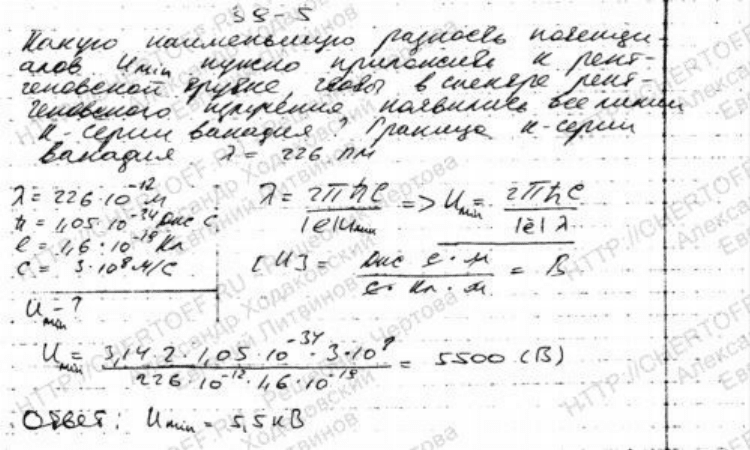 39-5
Какую наименьшую разность потенци-
алов Umin нужно приложить к рент-
геновской трубке, чтобы в спектре рент-
геновского излучения появились все линии
К-серии ванадия? Граница К-серии
ванадия λ = 226 пм
λ = 226·10⁻¹² м
ħ = 1,05·10⁻³⁴ Дж с
e = 1,6·10⁻¹⁹ Кл
c = 3·10⁸ м/с
Umin - ?
λ = 2πħc / |e|Umin => Umin = 2πħc / |e|λ
[U] = Дж · с · м / с · Кл · м = В
Umin = 3,14·2·1,05·10⁻³⁴·3·10⁸ / 226·10⁻¹²·1,6·10⁻¹⁹ = 5500 (В)
Ответ: Umin = 5,5 кВ
HTTP://CHERTOFF.RU
Решебник Чертова
Александр Ходаковский
Евгений Литвинов